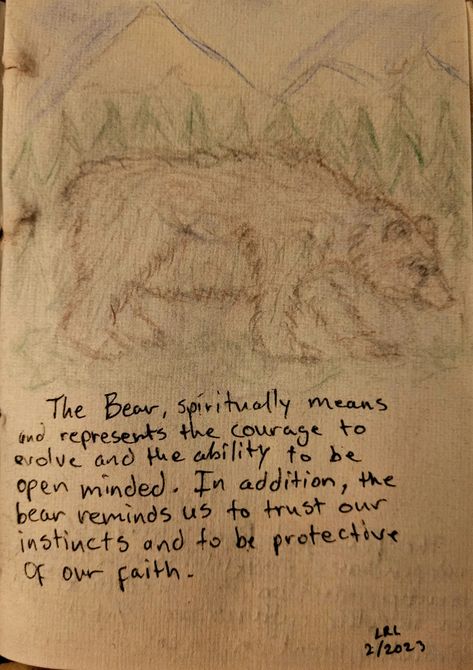 The Bear, spiritually means
and represents the courage to
evolve and the ability to be
open minded. In addition, the
bear reminds us to trust our
instincts and to be protective
Of our faith.
LRL
2/2023